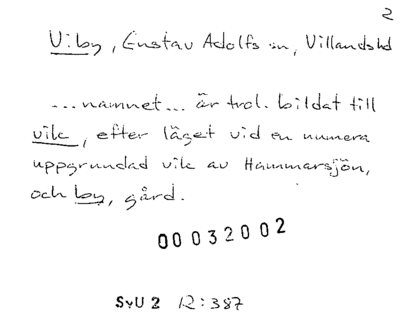 2
Viby, Gustav Adolfs sn, Villandshd
...namnet... är trol. bildat till
vik, efter läget vid en numera
uppgrundad vik av Hammarsjön,
och by, gård.
00032002
SvU 2 12:387